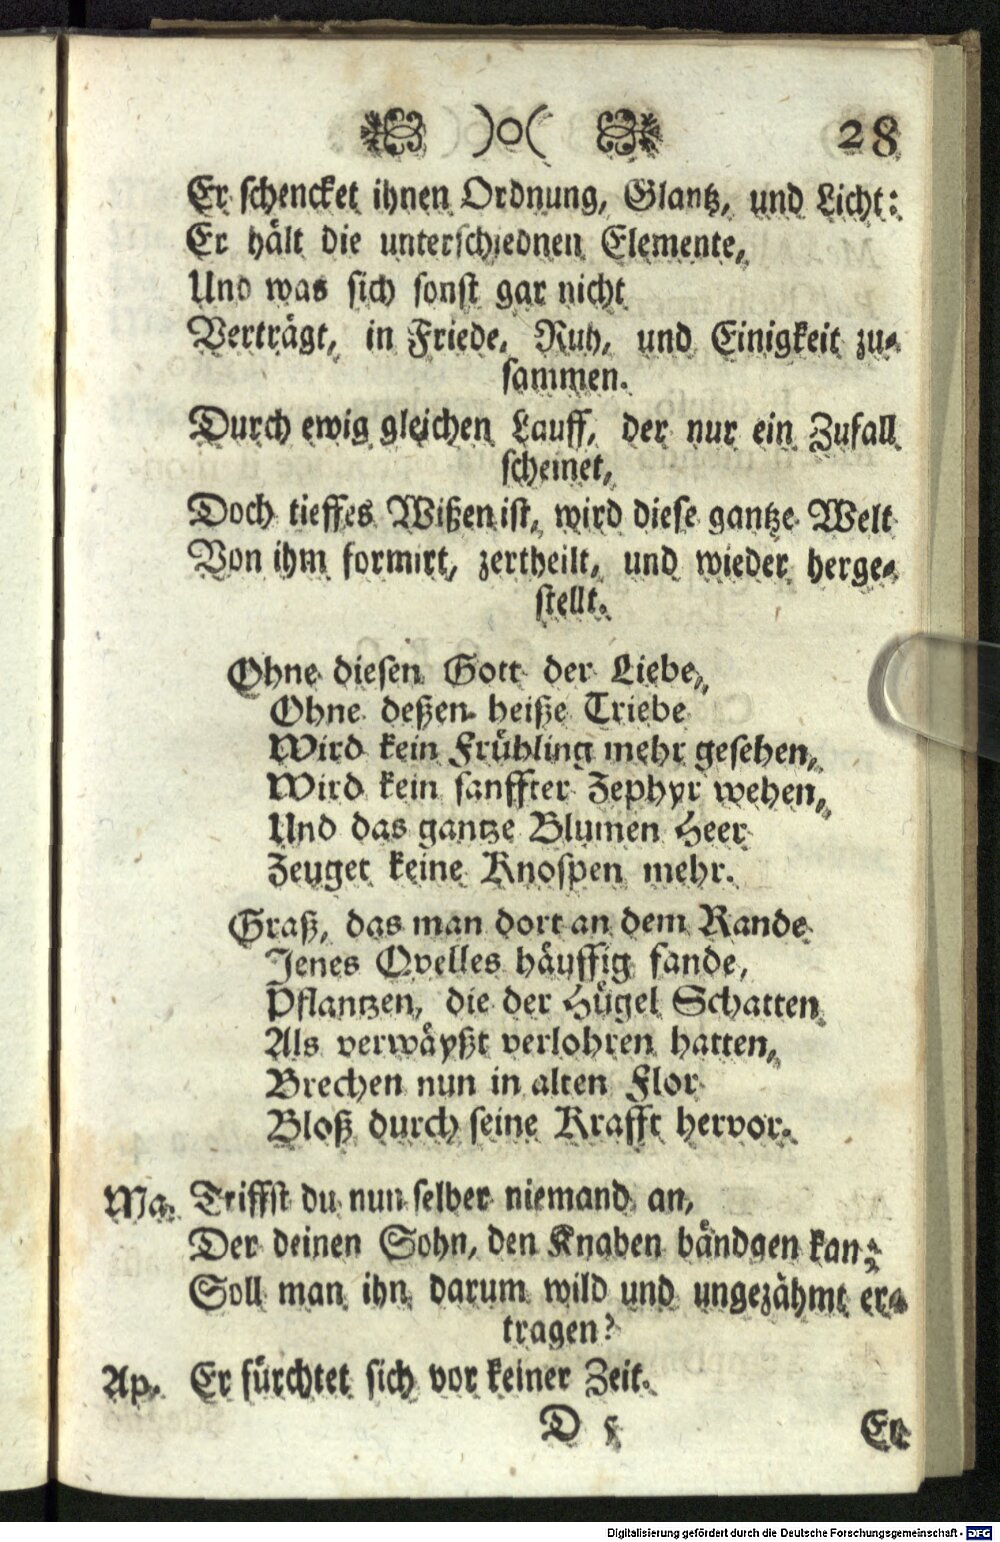 )o( 28
Er schencket ihnen Ordnung, Glantz, und Licht:
Er hält die unterschiednen Elemente,
Und was sich sonst gar nicht
Verträgt, in Friede, Ruh, und Einigkeit zu-
sammen.
Durch ewig gleichen Lauff, der nur ein Zufall
scheinet,
Doch tieffes Wißen ist, wird diese gantze Welt
Von ihm formirt, zertheilt, und wieder herge-
stellt.
Ohne diesen Gott der Liebe,
Ohne deßen heiße Triebe
Wird kein Frühling mehr gesehen,
Wird kein sanffter Zephyr wehen,
Und das gantze Blumen Heer
Zeuget keine Knospen mehr.
Graß, das man dort an dem Rande
Jenes Qvelles häuffig fande,
Pflantzen, die der Hügel Schatten
Als verwäyßt verlohren hatten,
Brechen nun in alten Flor
Bloß durch seine Krafft hervor.
Ma. Triffst du nun selber niemand an,
Der deinen Sohn, den Knaben bändgen kan;
Soll man ihn darum wild und ungezähmt er-
tragen?
Ap. Er fürchtet sich vor keiner Zeit.
D
Digitalisierung gefördert durch die Deutsche Forschungsgemeinschaft - DFG